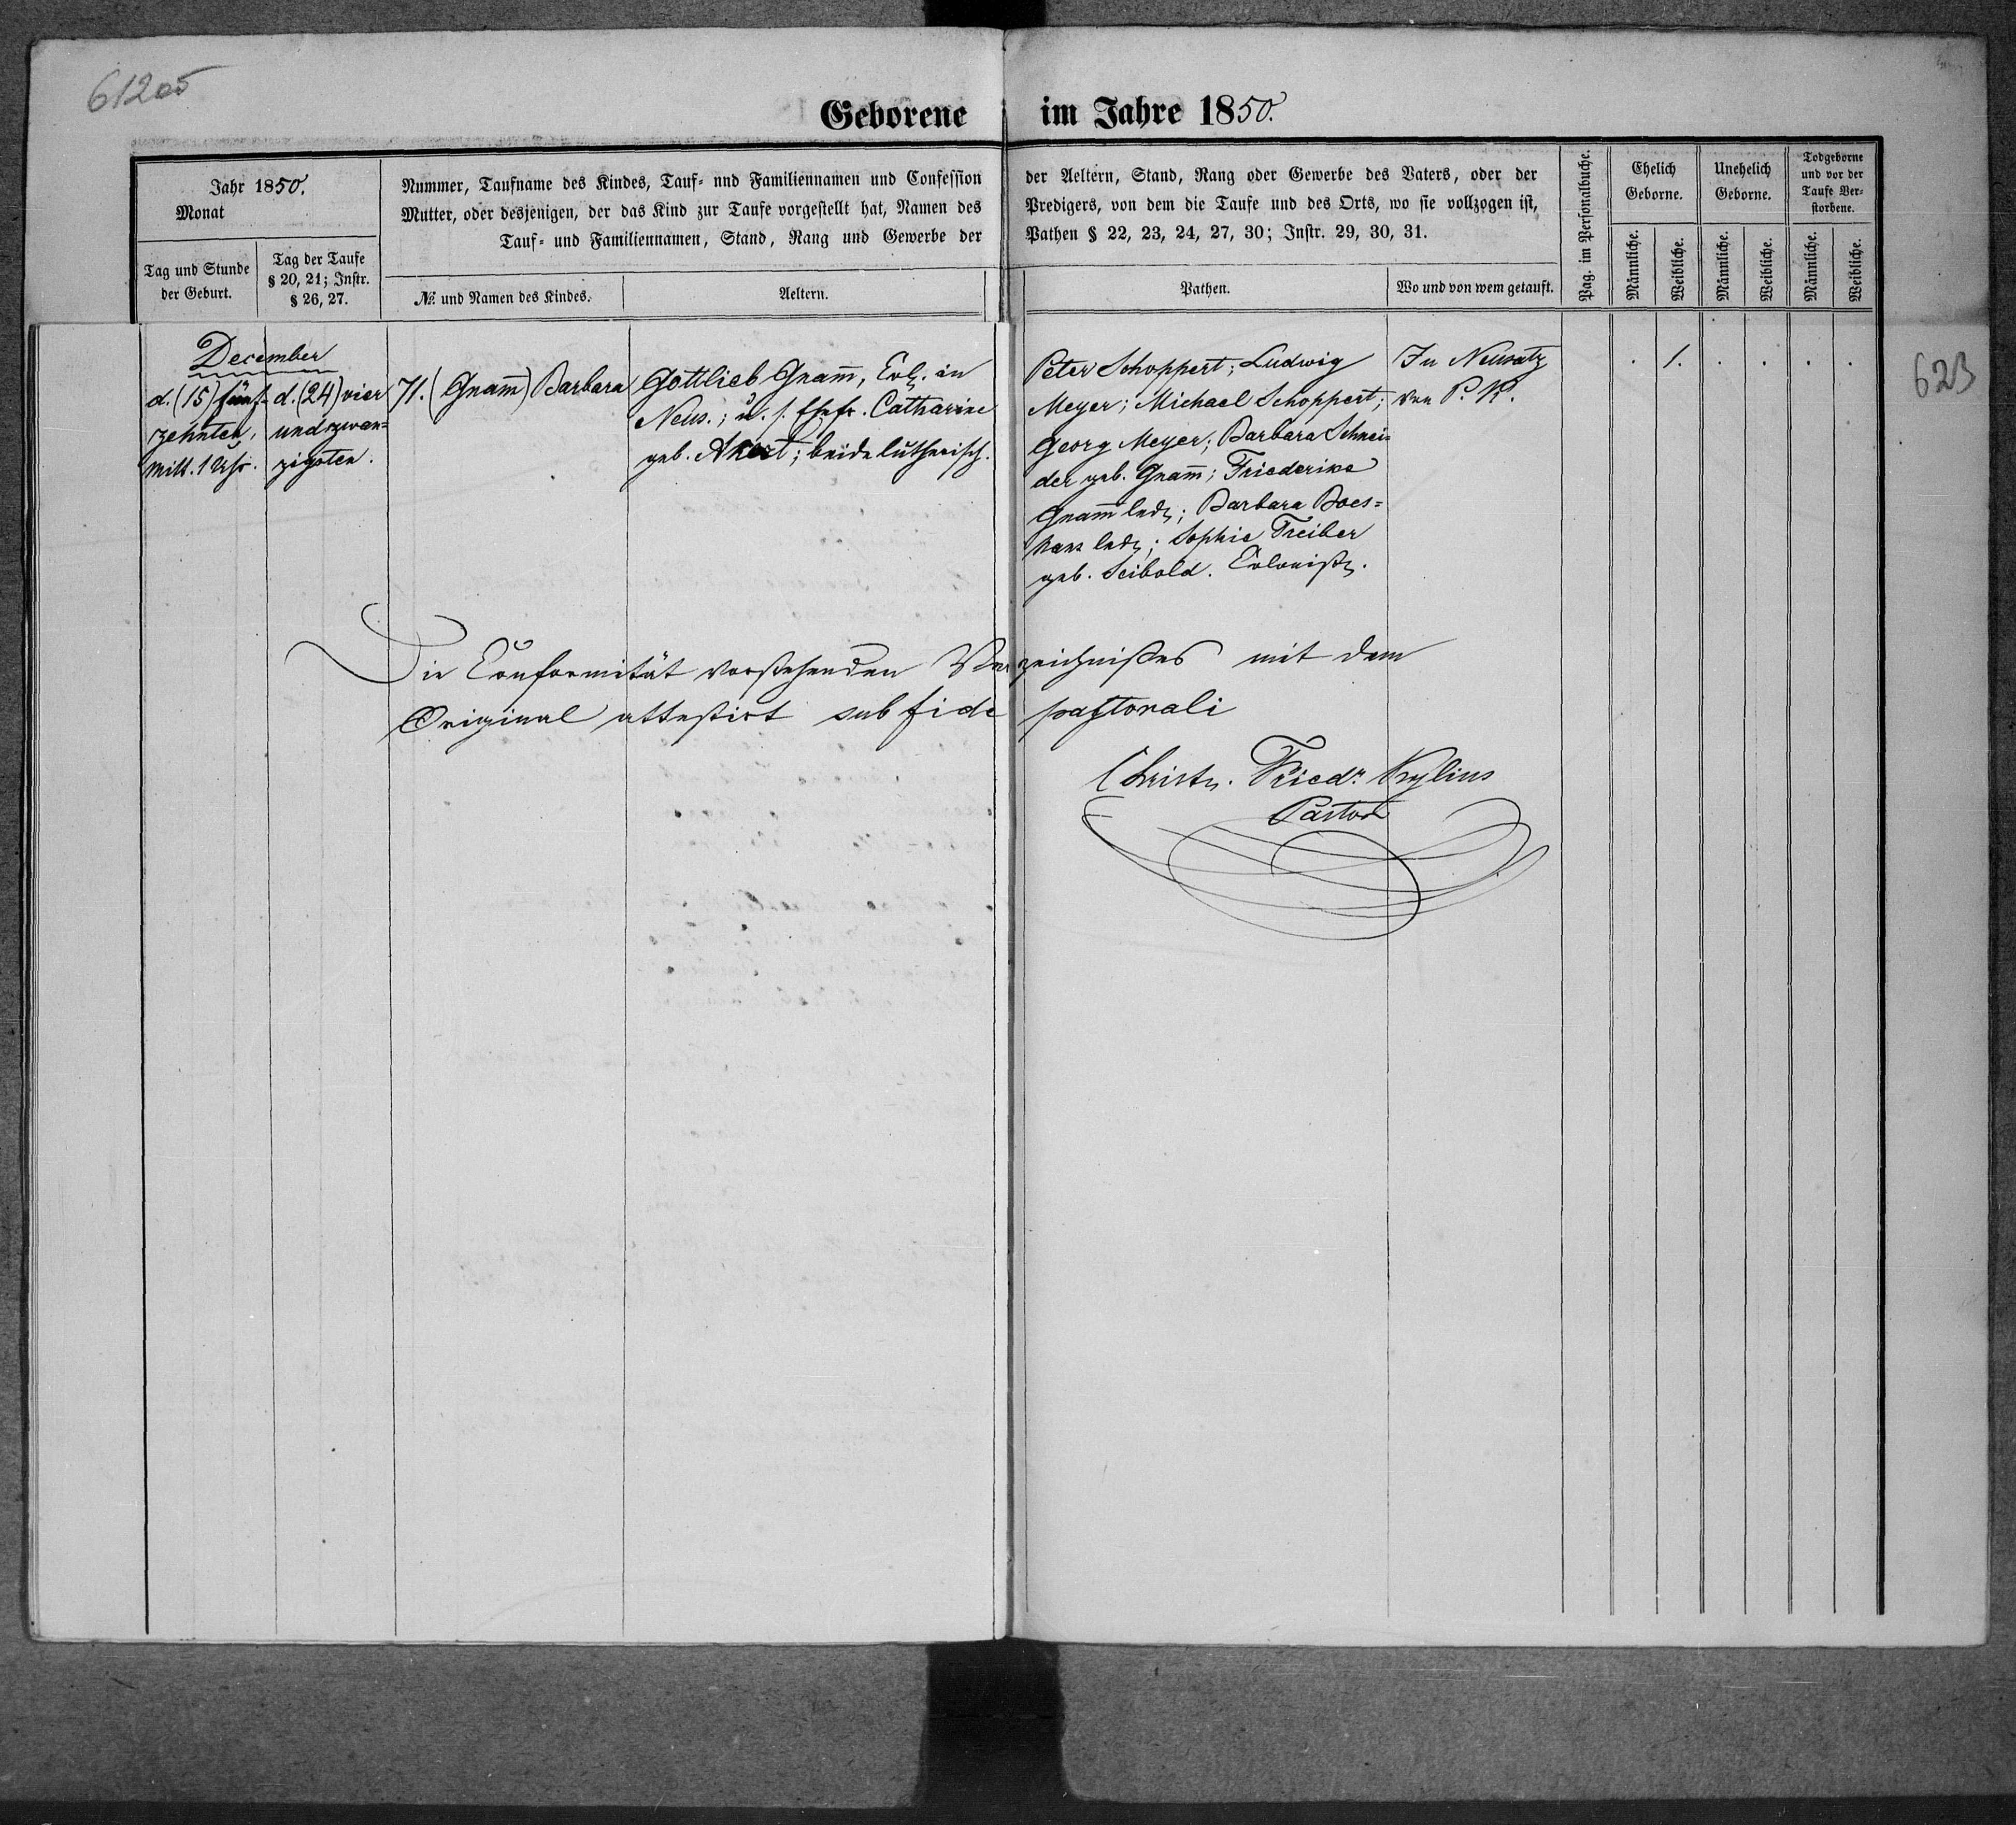 61205
Geborene im Jahre 1850.
Jahr 1850.
Monat
Tag und Stunde
der Geburt.
Tag der Taufe
§ 20, 21; Instr.
§ 26, 27.
Nummer, Taufname des Kindes, Tauf- und Familiennamen und Confession
Mutter, oder desjenigen, der das Kind zur Taufe vorgestellt hat, Namen des
Tauf- und Familiennamen, Stand, Rang und Gewerbe der
№ und Namen des Kindes.
Aeltern.
der Aeltern, Stand, Rang oder Gewerbe des Vaters, oder der
Predigers, von dem die Taufe und des Orts, wo sie vollzogen ist,
Pathen § 22, 23, 24, 27, 30; Instr. 29, 30, 31.
Pathen.
Wo und von wem getauft.
Pag. im Personalbuche.
Ehelich
Geborne.
Männliche.
Weibliche.
Unehelich
Geborne.
Männliche.
Weibliche.
Todgeborne
und vor der
Taufe Ver-
storbene.
Männliche.
Weibliche.
December
d. (15) fünf-
zehnten,
Mitt. 1 Uhr.
d. (24) vier
und zwan-
zigsten.
71. (Gnam̅) Barbara
Gottlieb Gnam̅, Col. in
Neus.; u. s. Ehefr. Catharine
geb. ; beide lutherisch.
Peter Schoppert; Ludwig
Meyer; Michael Schoppert;
Georg Meyer; Barbara Schnei-
der geb. Gnam̅; Friederike
Gnam̅ led.; Barbara Boes-
led.; Sophie Treiber
geb. Seibold. Coloniste.
In Neusatz
von P. K.
. 1. . . . .
623
Die Conformität vorstehenden Verzeichnißes mit dem
Original attestirt sub fide pastorali
Christn. Friedr. Kylius
Pastor